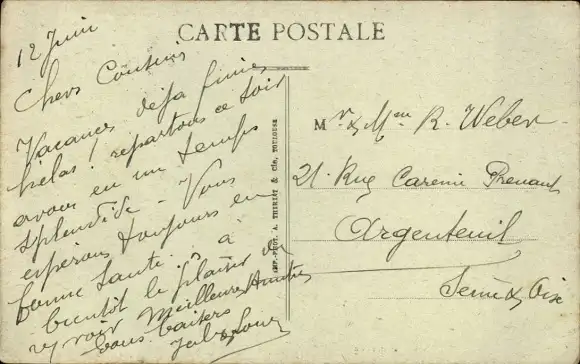 CARTE POSTALE
12 Juin
Chers Cousins
Vacances déja finies
hélas! repartons ce soir
avons eu un temps
splendide - Vous
espérons toujours en
bonne santé. à
bientôt le plaisir de
vs voir Meilleures Amitiés
bons baisers
IMP.-PHOT. A. THIRIAT & Cie, TOULOUSE
Mr & Mme R. Weber
21. Rue Careme Prenant
Argenteuil
Seine & Oise